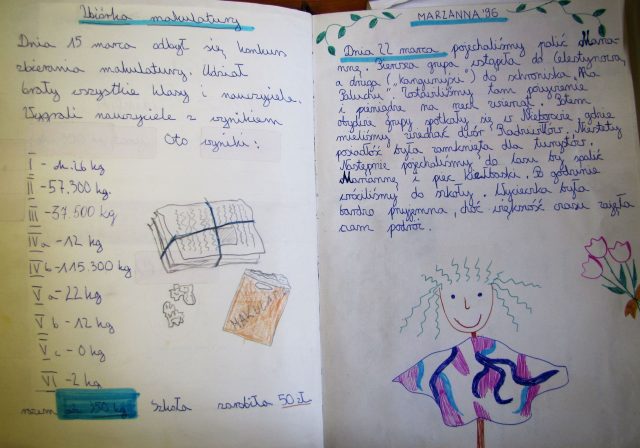 Zbiórka makulatury
Dnia 15 marca odbył się konkurs
zbierania makulatury. Udział
brały wszystkie klasy i nauczyciele.
Wygrali nauczyciele z wynikiem
Oto wyniki:
I - ok. 26 kg
II - 57,300 kg.
III - 37.500 kg
IV a - 12 kg
IV b - 115.300 kg
V a - 22 kg
V b - 12 kg
V c - 0 kg
VI - 2 kg
razem ok. 350 kg. Szkoła zarobiła 50 zł
MAKULA
MARZANNA '96
Dnia 22 marca pojechaliśmy palić Marza-
nnę. Pierwsza grupa wstąpiła do Celestynowa,
a druga ("kangurujxi") do schroniska "Na
Paluchu". Zostawiliśmy tam pożywienie
i pieniądze na rzecz zwierząt. Potem
obydwie grupy spotkały się w gdzie
mieliśmy zwiedzać dwór Radziwiłłów. Niestety
posiadłość była zamknięta dla turystów.
Następnie pojechaliśmy do lasu by spalić
Marzannę i piec kiełbaski. Po godzinie
wróciliśmy do szkoły. Wycieczka była
bardzo przyjemna, choć większość czasu zajęła
nam podróż.